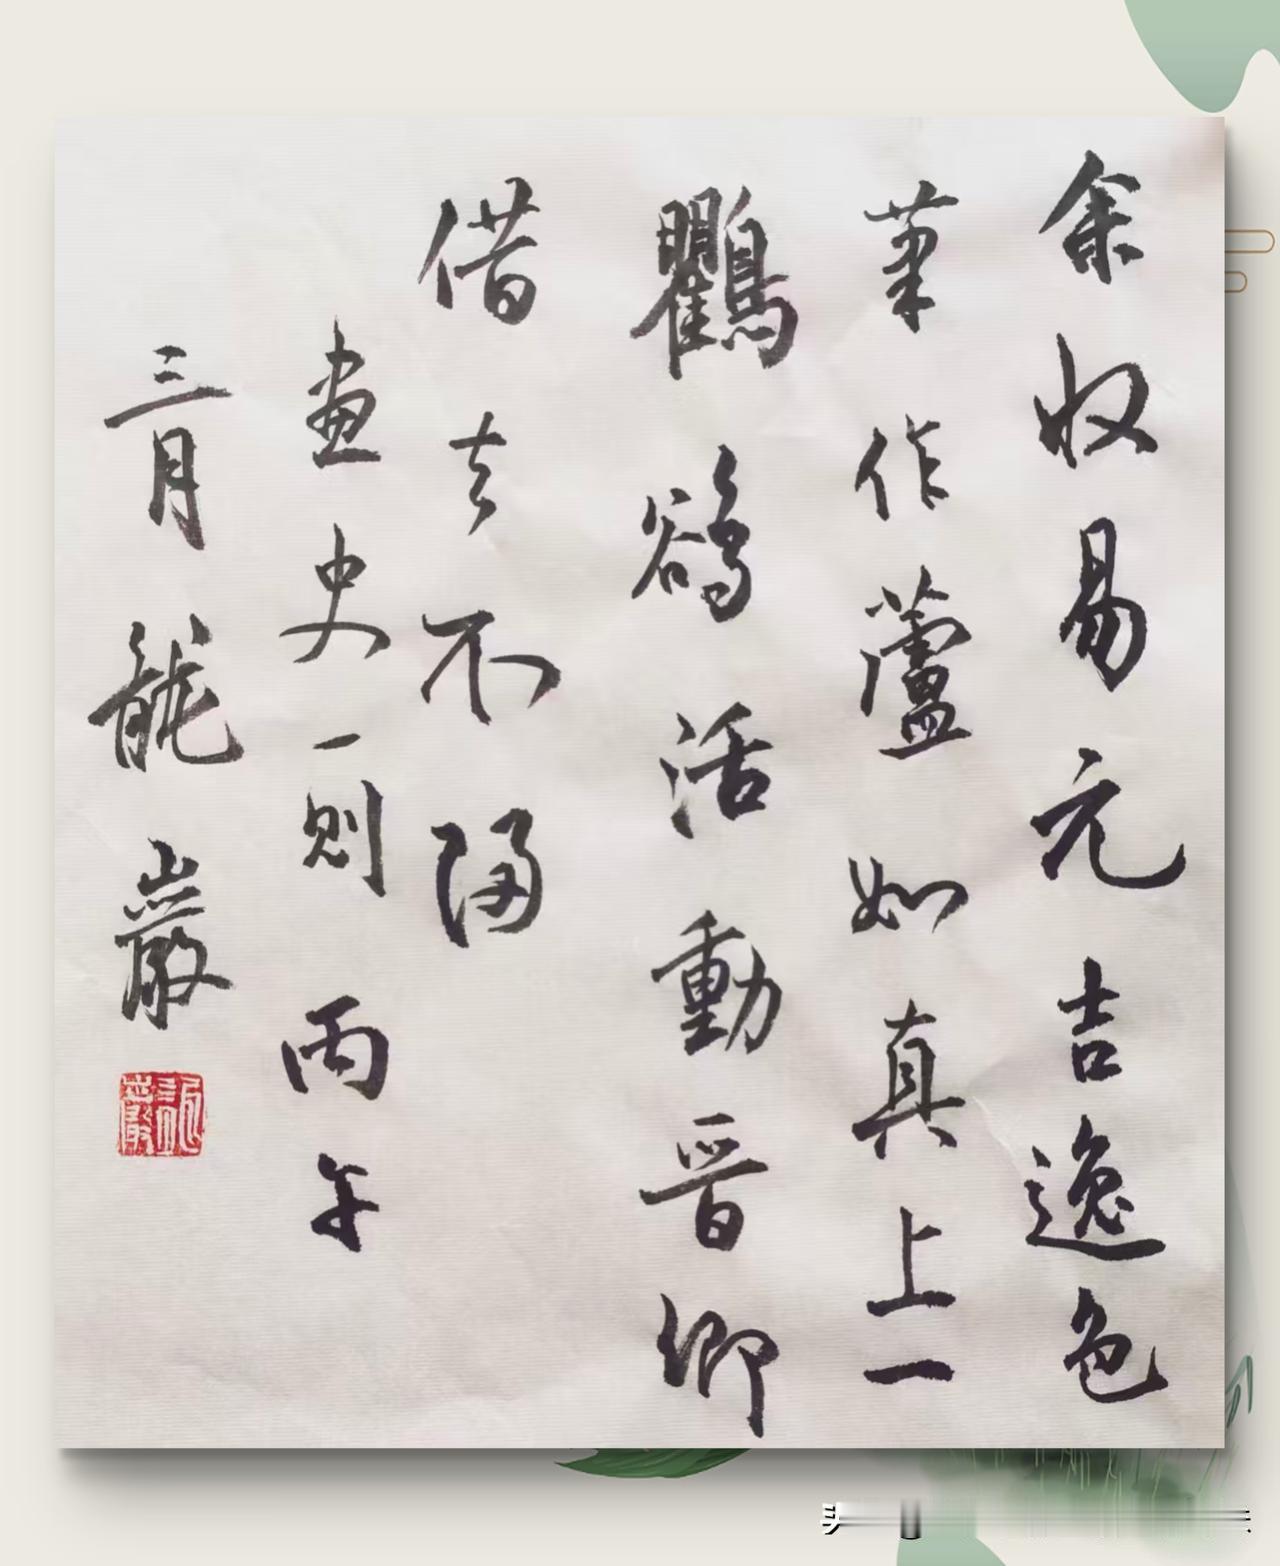 余收易元吉逸色
筆作蘆如真上一
鸜鵒活動晉卿
借去不歸
畫史一則 丙午
三月 龍巖
龍巖
头